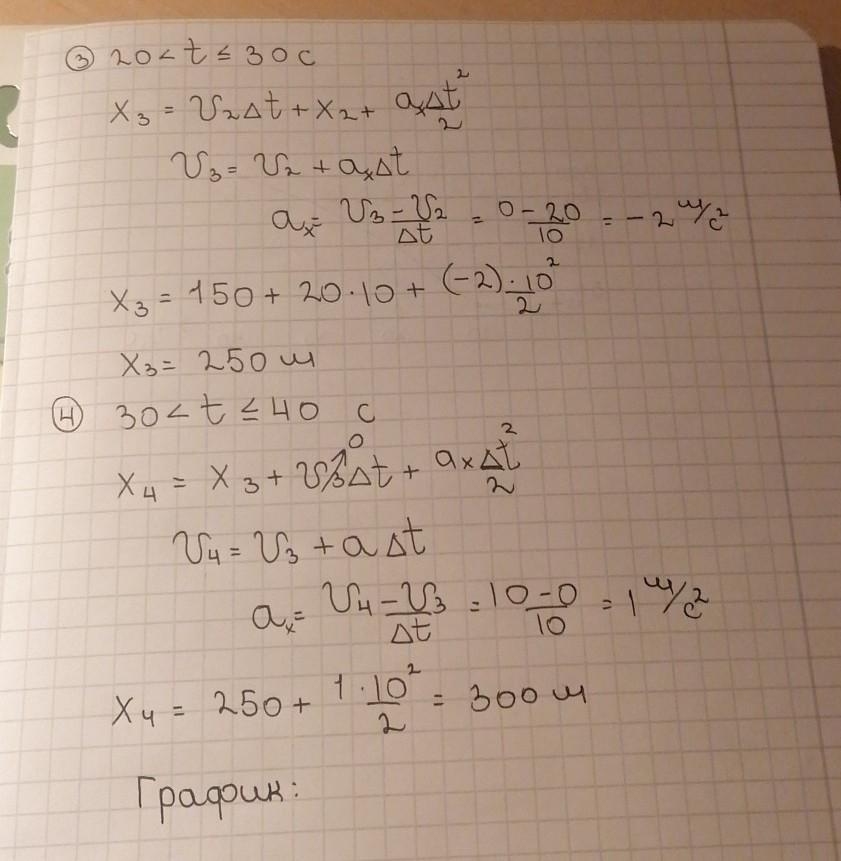 ③ 20 < t ≤ 30 с
x₃ = υ₂Δt + x₂ + aₓΔt²/2
υ₃ = υ₂ + aₓΔt
aₓ = (υ₃ − υ₂)/Δt = (0 − 20)/10 = −2 м/с²
x₃ = 150 + 20·10 + (−2)·10²/2
x₃ = 250 м
④ 30 < t ≤ 40 с
x₄ = x₃ + υ₃↗⁰Δt + aₓΔt²/2
υ₄ = υ₃ + aΔt
aₓ = (υ₄ − υ₃)/Δt = (10 − 0)/10 = 1 м/с²
x₄ = 250 + 1·10²/2 = 300 м
График: